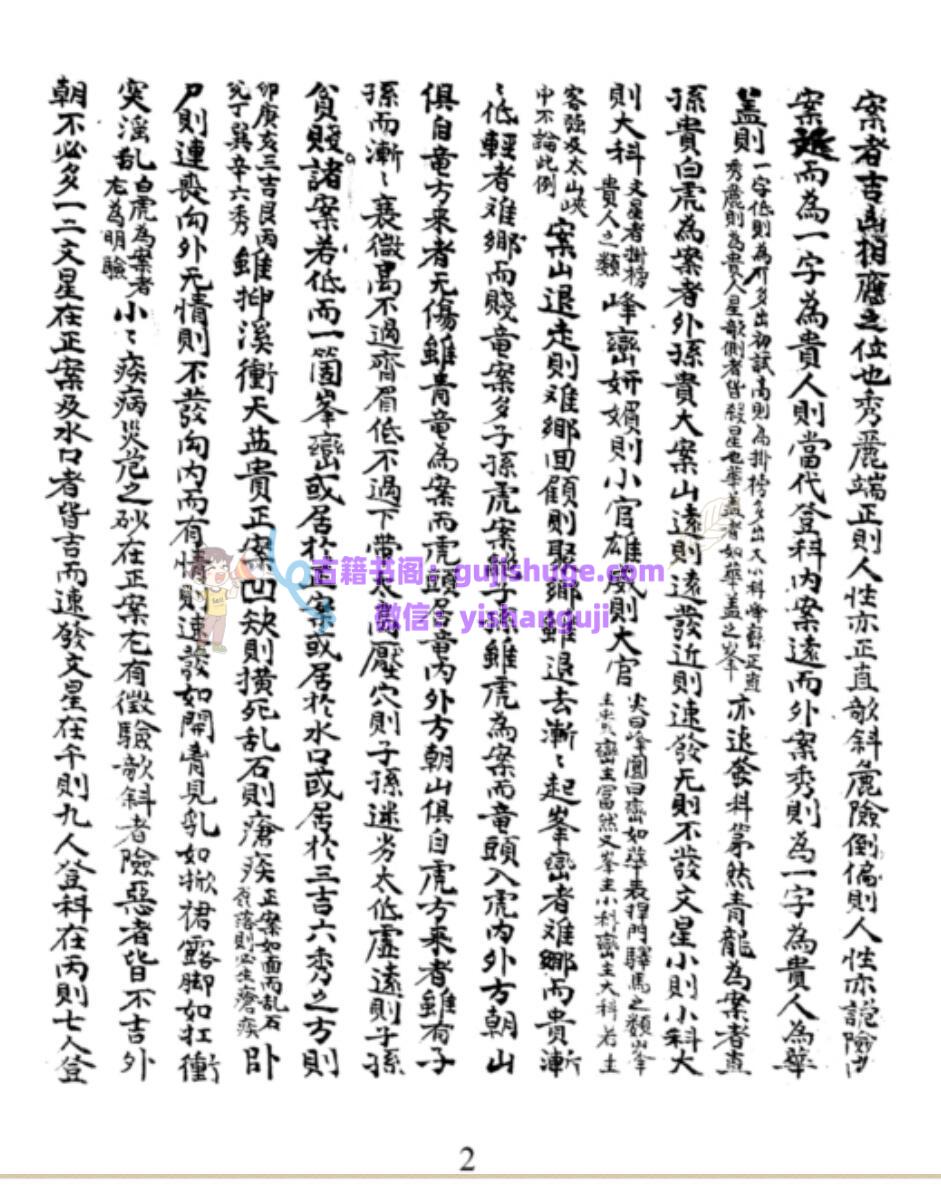 案者吉凶相應之位也秀麗端正則人性亦正直欹斜危險倒偏則人性亦詭險內
案遠而為一字為貴人則當代登科內案遠而外案秀則為一字為貴人為華
蓋則一字低則為多出初試高則為掛榜多出大小科峰巒正直
秀麗則為貴人星欹側者皆殺星也華蓋者如華蓋之峯亦速發科第然青龍為案者直
孫貴白虎為案者外孫貴大案山遠則遠發近則速發无則不發文星小則小科大
則大科文星者掛榜
貴人之類峰巒妍媚則小官雄威則大官尖曰峰圓曰巒如華表捍門驛馬之類峯
巒主富然又峯主小科巒主大科若土
客強及太山峽
中不論此例案山退走則难鄉回顧則聚鄉雖退去漸〻起峯巒者难鄉而貴漸
〻低輕者难鄉而賤竜案多子孫虎案尠子孫雖虎為案而竜頭入虎內外方朝山
俱自竜方来者无傷雖青竜為案而虎頭居竜內外方朝山俱自虎方来者雖有子
孫而漸〻衰微高不過齊眉低不過下帶太高壓穴則子孫迷劣太低虛遠則子孫
貧賤諸案若低而一箇峯巒或居於正案或居於水口或居於三吉六秀之方則
卯庚亥三吉艮丙
兊丁巽辛六秀雖抑溪衝天益貴正案凹缺則撗死乱石則瘡疾正案如面而乱石
落則必生瘡疾卧
尸則連喪向外无情則不發向內而有情則速發如開胷見乳如掀裙露脚如扛衝
突淫乱白虎為案者
尤為明驗小〻疾病災危之砂在正案尤有徵驗欹斜者險惡者皆不吉外
朝不必多一二文星在正案及水口者皆吉而速發文星在午則九人登科在丙則七人登
古籍书阁：gujishuge.com
微信：yishanguji
2